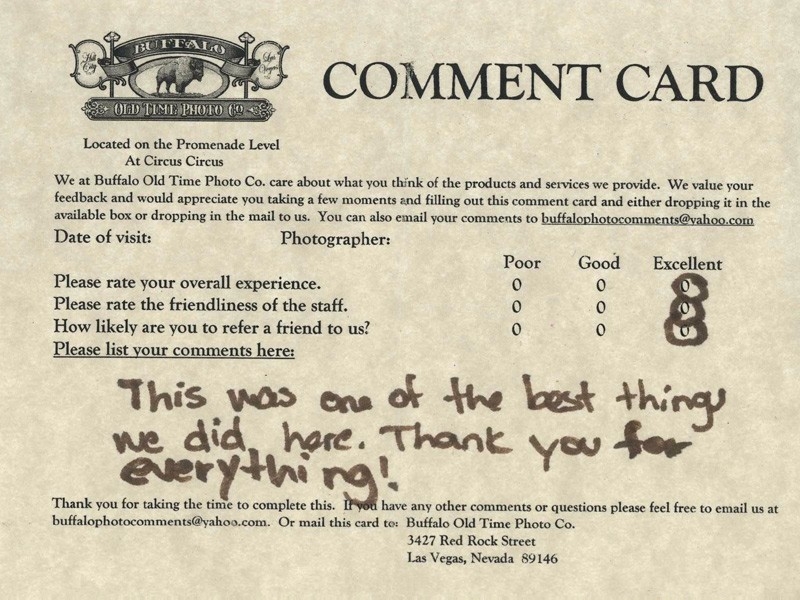 BUFFALO
Hill City
Las Vegas
OLD TIME PHOTO CO
COMMENT CARD
Located on the Promenade Level
At Circus Circus
We at Buffalo Old Time Photo Co. care about what you think of the products and services we provide. We value your
feedback and would appreciate you taking a few moments and filling out this comment card and either dropping it in the
available box or dropping in the mail to us. You can also email your comments to buffalophotocomments@yahoo.com
Date of visit: Photographer:
Poor Good Excellent
Please rate your overall experience. 0 0 0
Please rate the friendliness of the staff. 0 0 0
How likely are you to refer a friend to us? 0 0 0
Please list your comments here:
This was one of the best things
we did here. Thank you for
everything!
Thank you for taking the time to complete this. If you have any other comments or questions please feel free to email us at
buffalophotocomments@yahoo.com. Or mail this card to: Buffalo Old Time Photo Co.
3427 Red Rock Street
Las Vegas, Nevada 89146